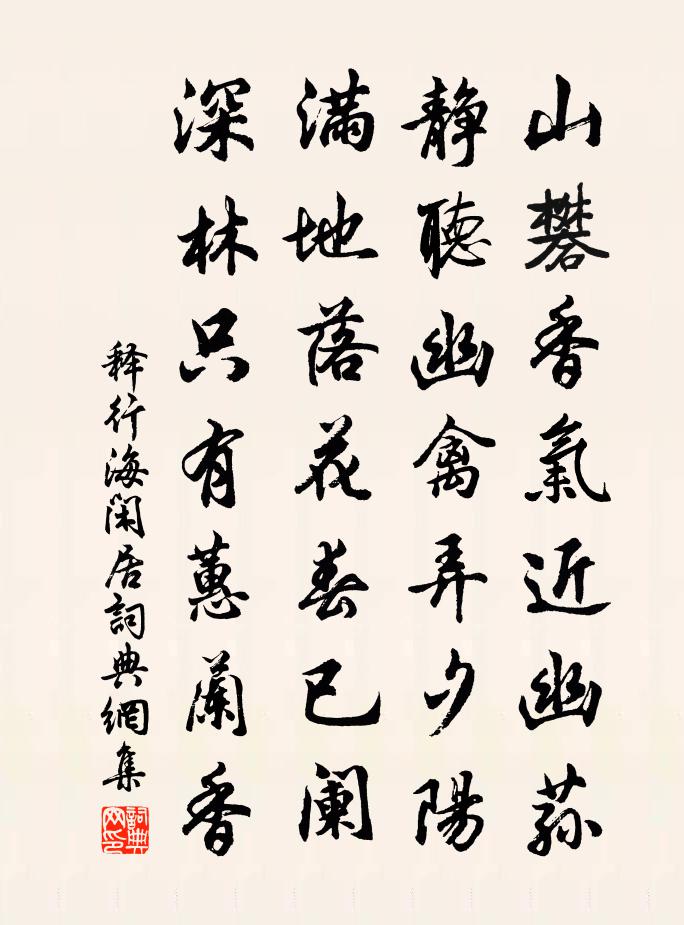 山礬香氣近幽蓀
静聴幽禽弄夕陽
滿地落花春已闌
深林只有蕙蘭香
释行海閑居詞典網集
詞典网印